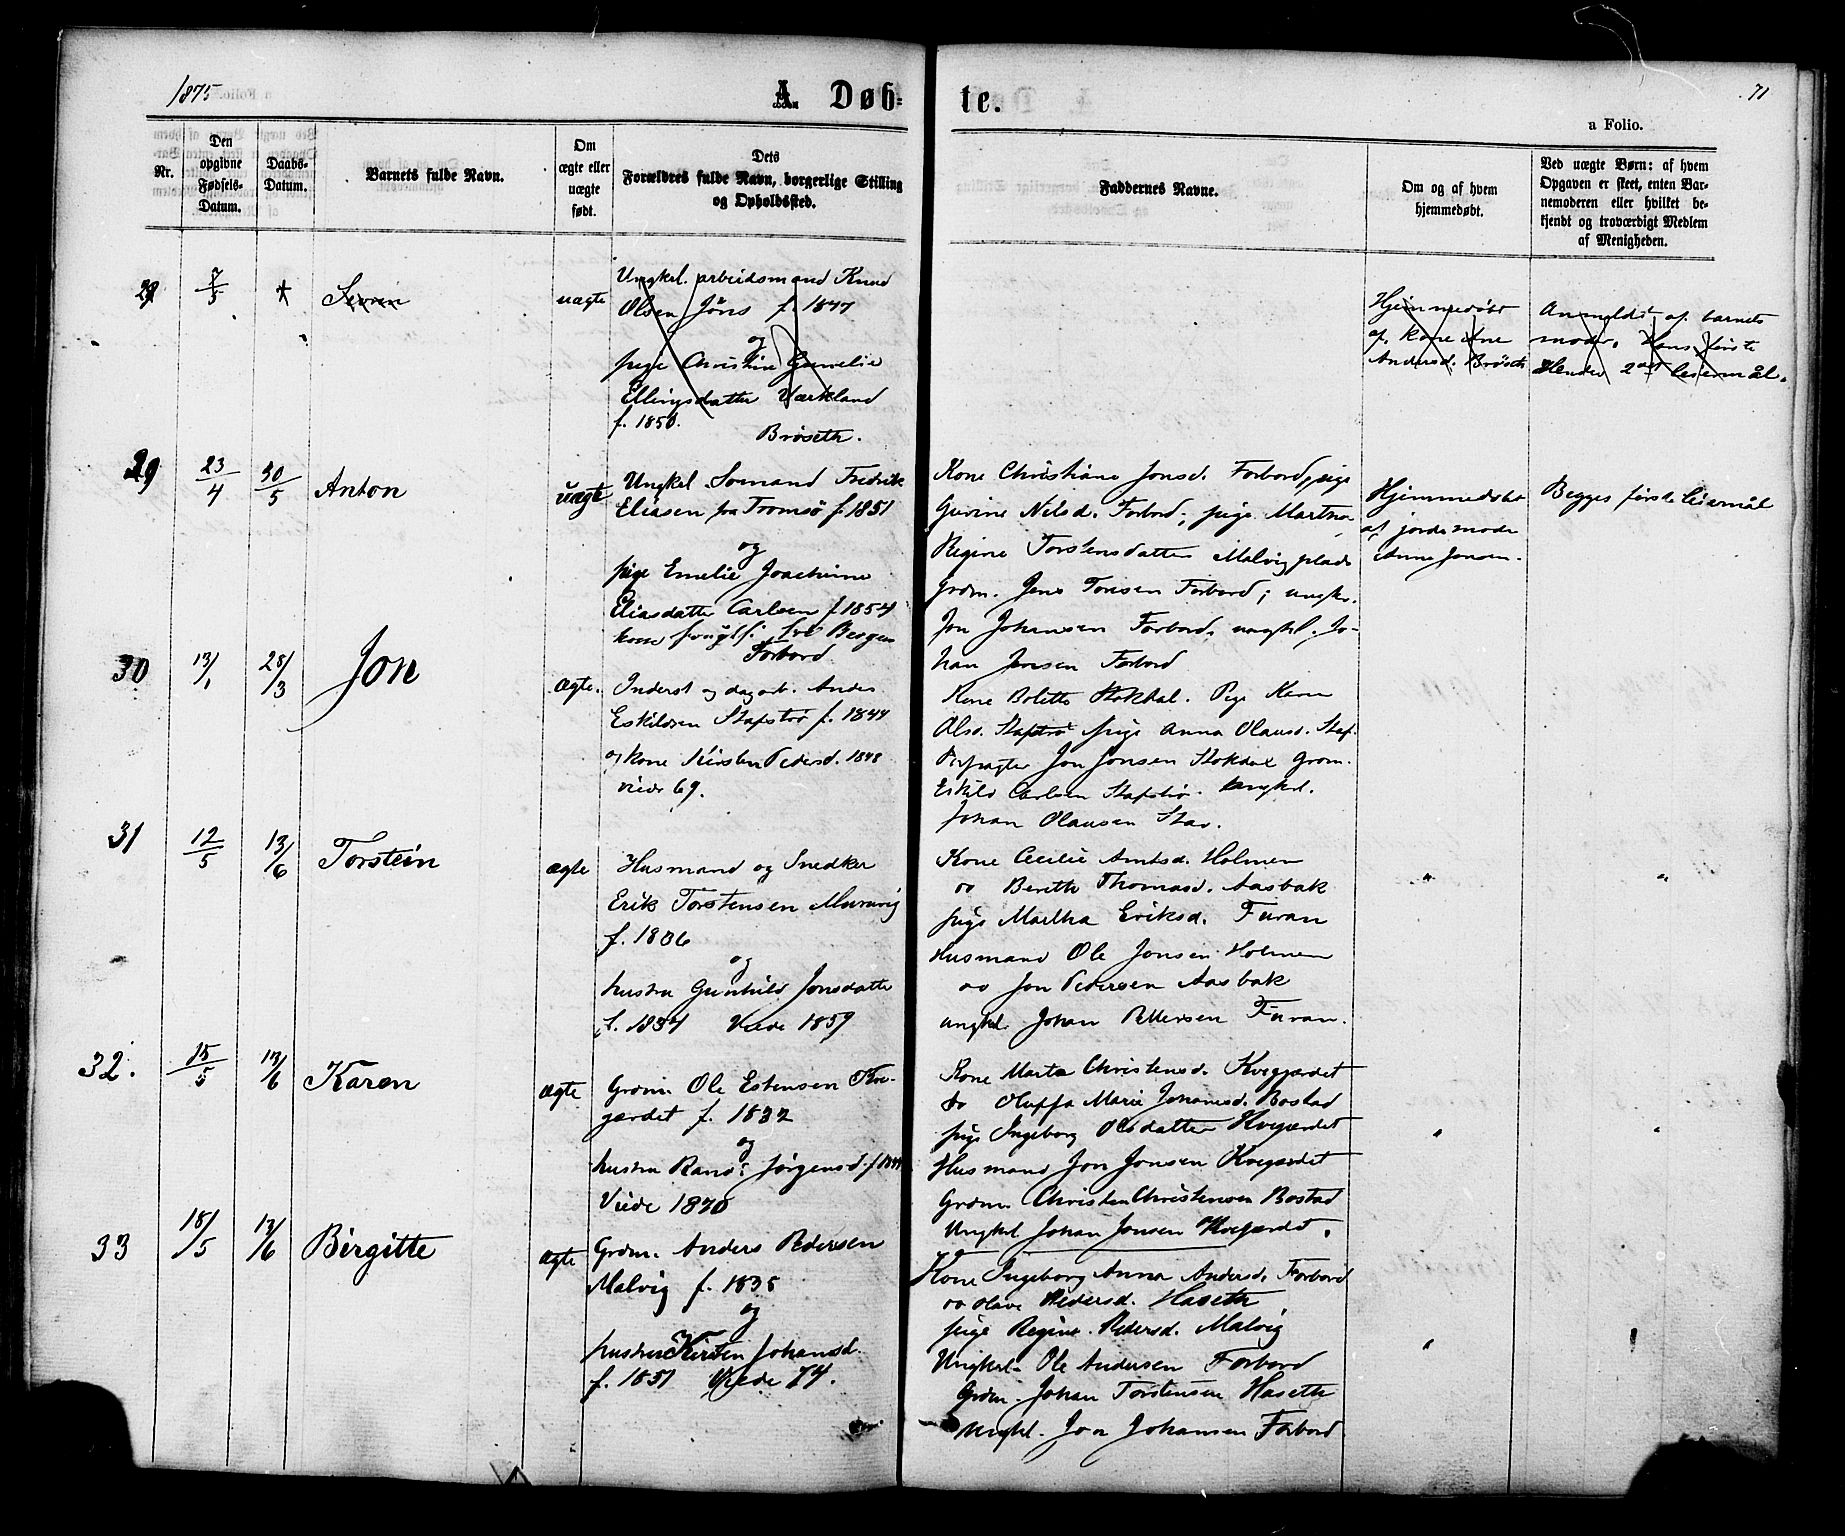 1875
A Døb-
te.
71
a Folio.
Nr.
Den
opgivne
Fødsels-
Datum.
Daabs-
Datum.
Barnets fulde Navn.
Om
ægte eller
uægte
født.
Dets
Forældres fulde Navn, borgerlige Stilling
og Opholdssted.
Faddernes Navne.
Om og af hvem
hjemmedøbt.
Ved uægte Børn: af hvem
Opgaven er skeet, enten Bar-
nemoderen eller hvilket be-
kjendt og troværdigt Medlem
af Menigheden.
7/5
uægte
Ungkel. arbeidsmand Knud
Olsen Jöns f. 1847
og
pige Christine
Ellingsdatter Værkland
f. 1850.
Brøseth.
Hjemmedøbt
af kone Ane
Andersd. Brøseth
Anmeldt af barnets
moder. Hans første
Hendes 2det leiermål.
29
23/4
30/5
Anton
uægte
Ungkel. Sømand Fredrik
Eliasen fra Tromsø f. 1851
og
pige Emelie Joachime
Eliasdatter Carlsen f. 1854
Forbord
Kone Christiane Jonsd. Forbord, pige
Gurine Nilsd. Forbord; pige Martha
Regine Torstensdatter Malvig plads
Grdm. Jens Tonsen Forbord; ungk.
Jon Johansen Forbord, ungkl. Jo-
han Jensen Forbord
Hjemmedøbt
af jordemoder
Anne Jonsen.
Begges første leiermål
30
13/1
28/3
Jon
Ægte.
Inderst og dagarb. Anders
Eskildsen Stapstø f. 1844
og kone Kirsten Pedersd. 1848
viede 69.
Kone Bolette Stokdal. Pige Karen
Olsd. Stapstø pige Anna Olausd. Stap.
Jon Jonsen Stokdal Grdm.
Eskild Carlsen Stapstø. Ungkl.
Johan Olausen Stav.
31
12/5
13/6
Torstein
ægte
Husmand og Snedker
Erik Torstensen Muruvig
f. 1836
og
hustru Gunhild Jonsdatter
f. 1834 Viede 1859
Kone Cecilie Arntsd. Holmen
do Berethe Thomasd. Aasbak
pige Martha Eriksd. Furan
Husmand Ole Jonsen Holmen
do Jon Pedersen Aasbak
ungkl. Johan Pettersen Furan.
"
"
32.
15/5
13/6
Karen
ægte
Grdm. Ole Estensen Kve-
gjærdet f. 1832
og
hustru Jörgensd. f. 1844
Viede 1870
Kone Marta Christensd. Kvegjærdet
do Oluffa Marie Johannsd. Bostad
pige Ingeborg Olsdatter Kvegjærdet
Husmand Jon Jonsen Kvegjærdet
Grdm. Christen Christensen Bostad
Ungkl Johan Jonsen Kvegjærdet.
"
"
33
18/5
13/6
Birgitte
ægte
Grdm. Anders Pedersen
Malvig f. 1835
og
hustru Kirsten Johansd.
f. 1851 Viede 74.
Kone Ingeborg Anna Andersd. Forbord
do Olava Pedersd. Haseth
pige Regine Pedersd. Malvig
Ungkel. Ole Andersen Forbord
Grdm. Johan Torstensen Haseth
Ungkl. Jon Johansen Forbord
"